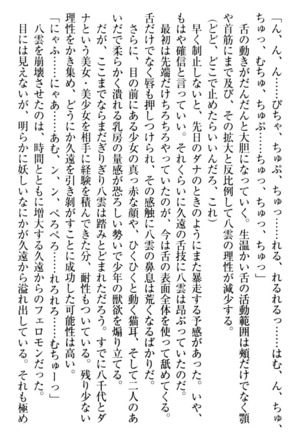 「ん、ん、んっ……ぴちゃ、ちゅぷ、ちゅっ……れる、れるれるっ……はむ、ん、ちゅ、
ちゅっ、むちゅ、ちゅぷ……ちゅっ、ちゅっ」
舌の動きがだんだんと大胆になっていく。生温かい舌の活動範囲は頬だけでなく顎
や首筋にまで及び、その拡大と反比例して八雲の理性が減少する。
（ど、どこで止めたらいいんだろ、これ）
早く制止しないと、先日のダナのときのようにまた暴走する予感があった。いや、
もはや確信と言っていい。それくらいに久遠の舌技に八雲は昂ぶっていたのだ。
最初は先端だけちろちろやっていたのが、今は舌の表面全体を使って舐めてくる。
舌だけでなく唇も押しつけられ、その感触に八雲の鼻息は荒くなるばかりだ。
さらに、目の前にある少女の真っ赤な顔や、ひくひくと動く猫耳、そして二人のあ
いだで柔らかく潰れる乳房の量感が恐ろしい勢いで少年の獣欲を煽り立てる。
だが、ここまでならまだぎりぎり八雲は踏みとどまれただろう。すでに八千代とダ
ナという美女・美少女を相手に経験を積んできた分、耐性もついている。残り少ない
理性をかき集め、どうにか久遠を引き剥がすことに成功した可能性は高い。
「にゃふ……にゃぁ……あむ、ン、ン、ぺろぺろ……れろれろ……むちゅーっ」
八雲を崩壊させたのは、時間とともに増大する久遠からのフェロモンだった。
目には見えないが、明らかに妖しいなにかが久遠から溢れ出している。それも極め